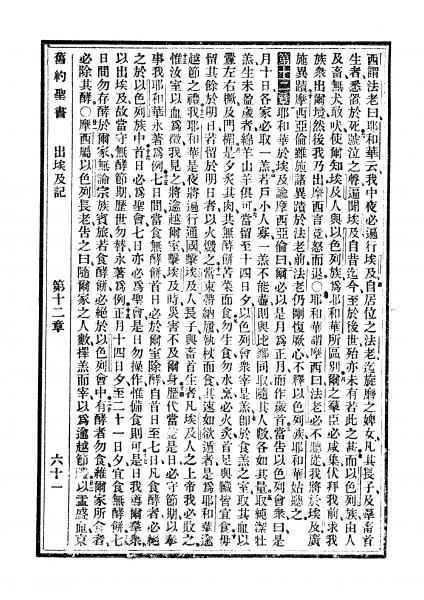 西謂法老曰耶和華云我中夜必遍行埃及自居位之法老迄旋磨之婢女凡其長子及羣畜首
生者悉置於死號泣之聲遍聞埃及自昔迄今至於後世殆亦未有若此之甚而以色列族由人
及畜無犬敢吠使爾知埃及人與以色列族爲耶和華所區別爾之羣臣必咸集伏拜我前求我
族衆出爾境然後我乃出摩西言竟怒而退○耶和華謂摩西曰法老必不聽從我將於埃及廣
施異蹟摩西亞倫雖施諸異蹟於法老前法老仍剛愎厥心不釋以色列族耶和華姑聽之
第十二章 耶和華於埃及諭摩西亞倫曰爾必以是月爲正月而作歲首當告以色列會衆曰是
月十日各家必取一羔若戶小人寡一羔不能盡則與比鄰同取隨其人數各如其量取純潔牡
羔生未盈歲者綿羊山羊俱可當留至十四日夕以色列會衆宰是羔卽於食羔之室取其血以
釁左右橛及門楣是夕炙其肉共無酵餅苦菜而食勿生食勿水烹必火炙首足與臟皆宜食毋
留其餘於明日若留於明日者以火燬之當束帶納履執杖而食其速如欲遁者是爲耶和華逾
越節之禮我耶和華是夜將遍行通國擊埃及人長子與畜首生者凡埃及人之上帝我必敗之
惟汝室以血爲徵我見之將逾越爾室擊埃及時災害不及爾身歷代當以是日必守節期以奉
事我耶和華永著爲例七日間當食無酵餅首日必於爾室除酵自首日至七日凡食酵者必絕
之於以色列族中首日必爲聖會七日亦必爲聖會是日勿操作惟備食則可是日我導爾羣衆
以出埃及故當守無酵節期歷世勿替永著爲例正月十四日夕至二十一日夕宜食無酵餅七
日間勿存酵於爾家無論宗族賓旅若食酵餅必絕於以色列會中有酵者勿食雖爾家所食者
必除其酵○摩西屬以色列長老告之曰隨爾家之人數擇羔而宰以爲逾越節禮以盂盛血束
舊約聖書 出埃及記 第十二章 六十一